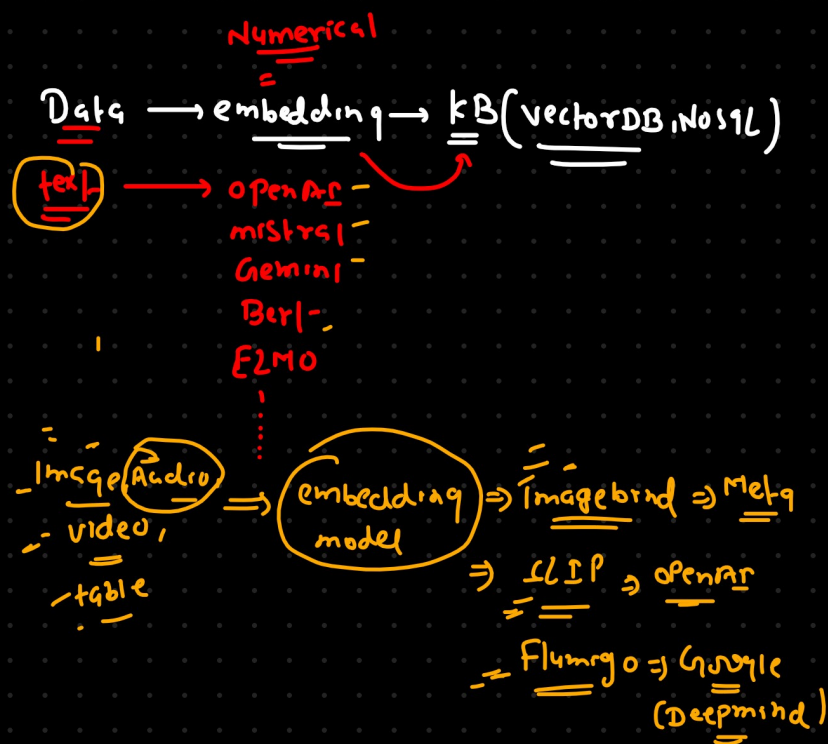 Numerical
Data → embedding → KB(vectorDB, NoSQL)
text → OpenAI
mistral
Gemini
Bert
ELMO
Image, Audio, ⇒ embedding model ⇒ Imagebind ⇒ Meta
video,
table
⇒ CLIP ⇒ OpenAI
Flamigo ⇒ Google
(Deepmind)